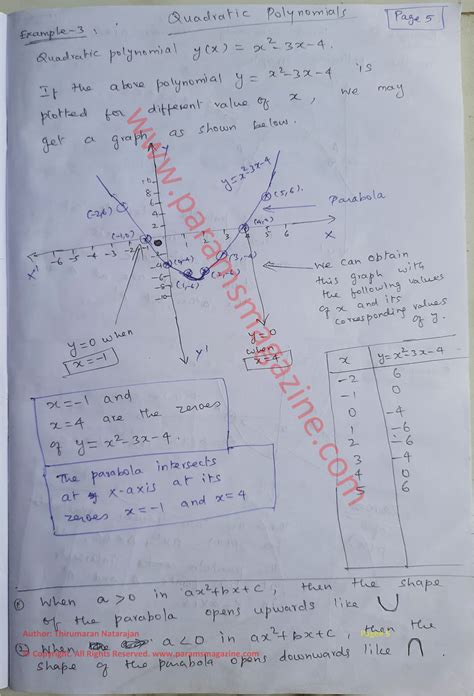 Quadratic Polynomials
Page 5
Example-3 :
Quadratic polynomial y(x) = x²-3x-4.
If the above polynomial y = x²-3x-4 is
plotted for different value of x, we may
get a graph as shown below.
Y
y=x²-3x-4
10
8
6
4
2
(-2,6)
(5,6)
Parabola
(-1,0)
(4,0)
X
X'
-6 -5 -4 -3 -2 -1
1 2 3 4 5 6
-2
-4
-6
-8
-10
(3,-4)
(1,-6)
(2,-6)
Y'
we can obtain
this graph with
the following values
of x and its
corresponding values
of y.
y=0 when
x=-1
y=0
when
x=4
x y=x²-3x-4
-2 6
-1 0
0 -4
1 -6
2 -6
3 -4
4 0
5 6
x=-1 and
x=4 are the zeroes
of y=x²-3x-4.
The parabola intersects
at x-axis at its
zeroes x=-1 and x=4
① When a>0 in ax²+bx+c, then the shape
of the parabola opens upwards like ∪
Author: Thirumaran Natarajan
② When a<0 in ax²+bx+c, then the
shape of the parabola opens downwards like ∩.
© Copyright. All Rights Reserved. www.paramsmagazine.com
www.paramsmagazine.com